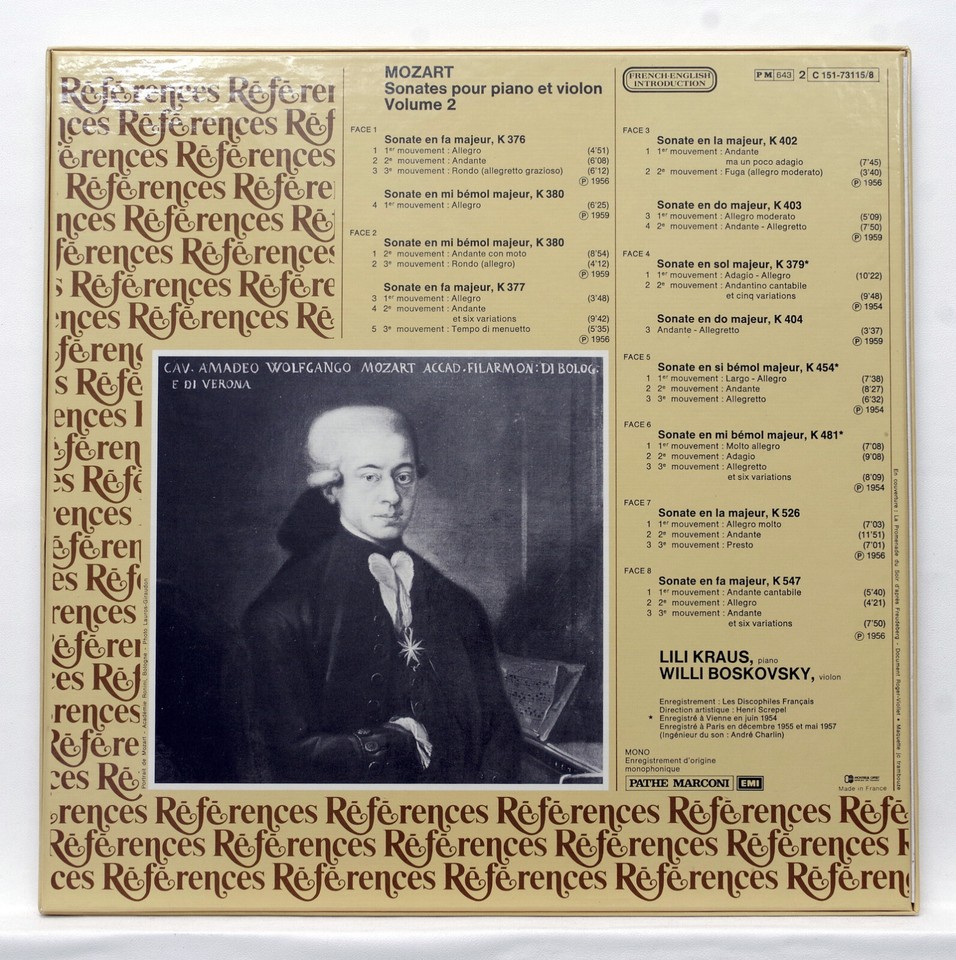 MOZART
Sonates pour piano et violon
Volume 2
FRENCH-ENGLISH
INTRODUCTION
PM 643 2 C 151-73115/8
FACE 1
Sonate en fa majeur, K 376
1 1er mouvement : Allegro (4'51)
2 2e mouvement : Andante (6'08)
3 3e mouvement : Rondo (allegretto grazioso) (6'12)
Ⓟ 1956
Sonate en mi bémol majeur, K 380
4 1er mouvement : Allegro (6'25)
Ⓟ 1959
FACE 2
Sonate en mi bémol majeur, K 380
1 2e mouvement : Andante con moto (8'54)
2 3e mouvement : Rondo (allegro) (4'12)
Ⓟ 1959
Sonate en fa majeur, K 377
3 1er mouvement : Allegro (3'48)
4 2e mouvement : Andante
et six variations (9'42)
5 3e mouvement : Tempo di menuetto (5'35)
Ⓟ 1956
FACE 3
Sonate en la majeur, K 402
1 1er mouvement : Andante
ma un poco adagio (7'45)
2 2e mouvement : Fuga (allegro moderato) (3'40)
Ⓟ 1956
Sonate en do majeur, K 403
3 1er mouvement : Allegro moderato (5'09)
4 2e mouvement : Andante - Allegretto (7'50)
Ⓟ 1959
FACE 4
Sonate en sol majeur, K 379*
1 1er mouvement : Adagio - Allegro (10'22)
2 2e mouvement : Andantino cantabile
et cinq variations (9'48)
Ⓟ 1954
Sonate en do majeur, K 404
3 Andante - Allegretto (3'37)
Ⓟ 1959
FACE 5
Sonate en si bémol majeur, K 454*
1 1er mouvement : Largo - Allegro (7'38)
2 2e mouvement : Andante (8'27)
3 3e mouvement : Allegretto (6'32)
Ⓟ 1954
FACE 6
Sonate en mi bémol majeur, K 481*
1 1er mouvement : Molto allegro (7'08)
2 2e mouvement : Adagio (9'08)
3 3e mouvement : Allegretto
et six variations (8'09)
Ⓟ 1954
FACE 7
Sonate en la majeur, K 526
1 1er mouvement : Allegro molto (7'03)
2 2e mouvement : Andante (11'51)
3 3e mouvement : Presto (7'01)
Ⓟ 1956
FACE 8
Sonate en fa majeur, K 547
1 1er mouvement : Andante cantabile (5'40)
2 2e mouvement : Allegro (4'21)
3 3e mouvement : Andante
et six variations (7'50)
Ⓟ 1956
LILI KRAUS, piano
WILLI BOSKOVSKY, violon
Enregistrement : Les Discophiles Français
Direction artistique : Henri Screpel
* Enregistré à Vienne en juin 1954
Enregistré à Paris en décembre 1955 et mai 1957
(Ingénieur du son : André Charlin)
MONO
Enregistrement d'origine
monophonique
PATHE MARCONI EMI
Made in France
En couverture : La Promenade du Soir d'après Freudeberg - Document Roger-Viollet • Maquette
Portrait de Mozart - Académie Rossini, Bologne - Photo Lauros-Giraudon
CAV. AMADEO WOLFGANGO MOZART ACCAD. FILARMON: DI BOLOG.
E DI VERONA
Références Référen
nces Références Réf
érences Références
Références Référe
nces Références Ré
férences Références
s Références Référe
ences Références Ré
féren
s Réfé
ences
éféren
es Réfé
rences
éféren
es Réf
rences
éféren
es Réf
rences
Référe
ces Ré
rences Références Références Références Références Réfé
Références Références Références Références Références R
ces Références Références Références Références Référen